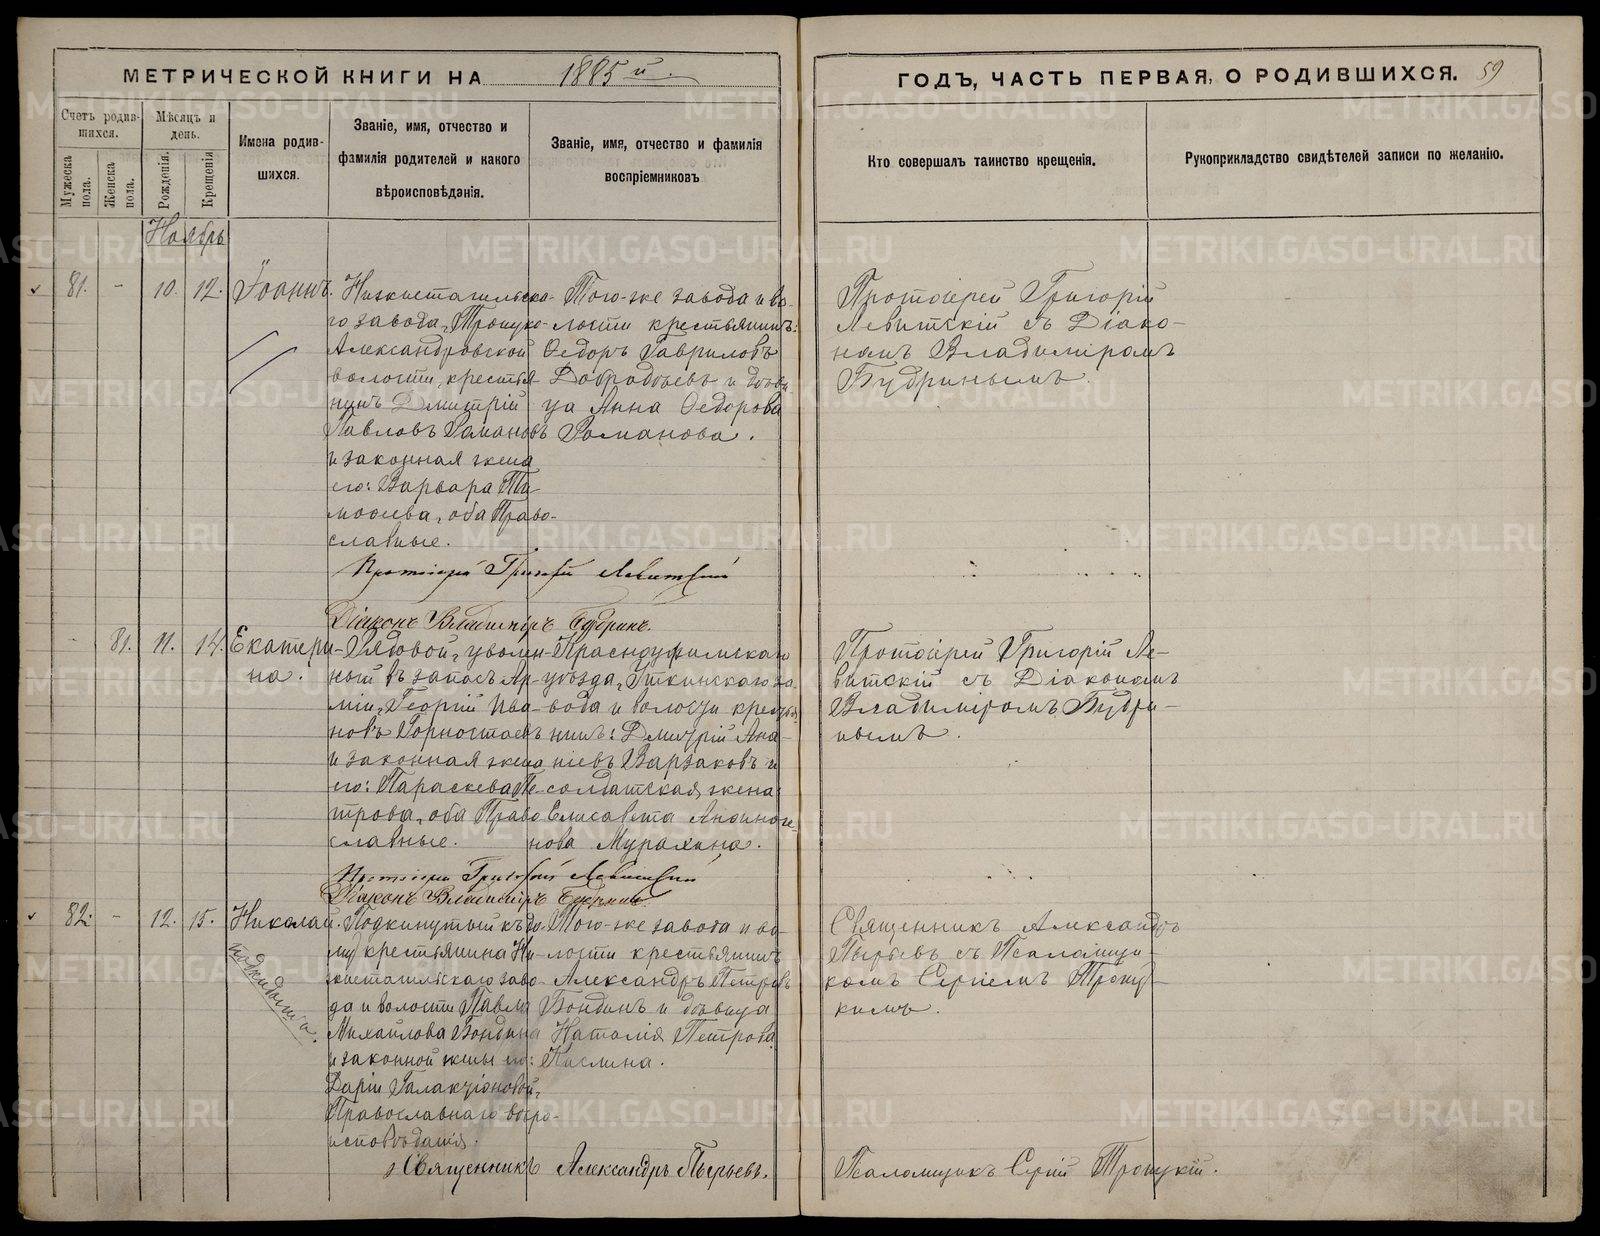 МЕТРИЧЕСКОЙ КНИГИ НА 1885 й.
ГОДЪ, ЧАСТЬ ПЕРВАЯ, О РОДИВШИХСЯ. 59
Счетъ родив-
шихся.
Мужеска пола.
Женска пола.
Мѣсяцъ и
день.
Рожденія.
Крещенія
Имена родив-
шихся.
Званіе, имя, отчество и
фамилія родителей и какого
вѣроисповѣданія.
Званіе, имя, отчество и фамилія
воспріемниковъ
Кто совершалъ таинство крещенія.
Рукоприкладство свидѣтелей записи по желанію.
Ноябрь
81. - 10. 12. Іоаннъ.
Нижнетагильска-
го завода, Троицко-
Александровской
волости, крестья-
нинъ Дмитрій
Павловъ Романовъ
и законная жена
его: Варвара Ти-
моѳеева, оба Право-
славные.
Того-же завода и во-
лости крестьянинъ:
Ѳедоръ Гавриловъ
Добродѣевъ и дѣви-
ца Анна Ѳедорова
Романова.
Протоіерей Григорій
Левитскій съ Діако-
номъ Владиміромъ
Будринымъ.
Протоіерей Григорій Левитскій
Діаконъ Владиміръ Будринъ.
- 81. 11. 14. Екатери-
на.
Рядовой, уволен-
ный въ запасъ Ар-
міи, Георгій Ива-
новъ Горностаевъ
и законная жена
его: Параскева Пе-
трова, оба Право
славные.
Красноуфимскаго
уѣзда, Уткинскаго за-
вода и волости крестья-
нинъ: Дмитрій Ана-
ніевъ Варзаковъ и
солдатская жена
Елисавета Анѳиноге-
нова
Протоіерей Григорій Ле-
витскій съ Діакономъ
Владиміромъ Будри-
нымъ.
Протоіерей Григорій Левитскій
Діаконъ Владиміръ Будринъ.
82. - 12. 15. Николай.
подкидышъ.
Подкинутый къ до-
му крестьянина Ни-
жнетагильскаго заво-
да и волости Павла
Михайлова Бондина
и законной жены его:
Даріи Галактіоновой,
Православнаго вѣро-
исповѣданія.
Того-же завода и во-
лости крестьянинъ
Александръ Петровъ
Бондинъ и дѣвица
Наталія Петрова
Кислина.
Священникъ Александръ
Пырьевъ съ Псаломщи-
комъ Сергіемъ Троиц-
кимъ.
Священникъ Александръ Пырьевъ.
Псаломщикъ Сергій Троицкій.
METRIKI.GASO-URAL.RU